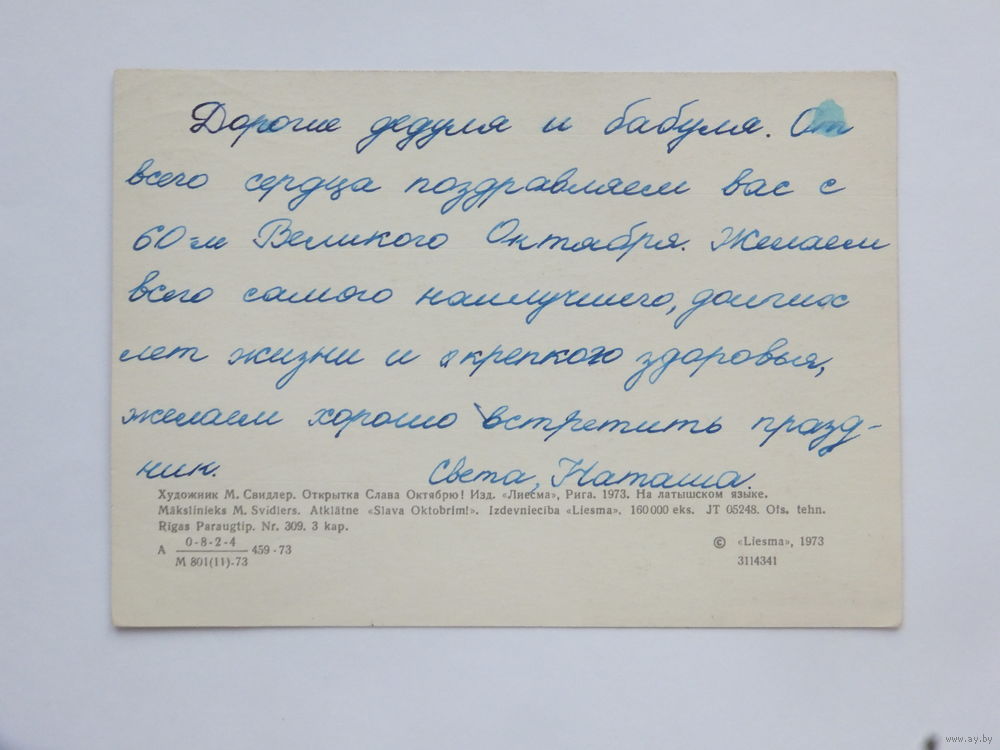 Дорогие дедуля и бабуля. От
всего сердца поздравляем вас с
60-м Великого Октября. Желаем
всего самого наилучшего, долгих
лет жизни и крепкого здоровья,
желаем хорошо встретить празд-
ник. Света, Наташа.
Художник М. Свидлер. Открытка Слава Октябрю! Изд. «Лиесма», Рига. 1973. На латышском языке.
Mākslinieks M. Svidlers. Atklātne «Slava Oktobrim!». Izdevniecība «Liesma». 160 000 eks. JT 05248. Ofs. tehn.
Rīgas Paraugtip. Nr. 309. 3 kap.
А 0-8-2-4 459-73
М 801(11)-73
© «Liesma», 1973
3114341
www.ay.by